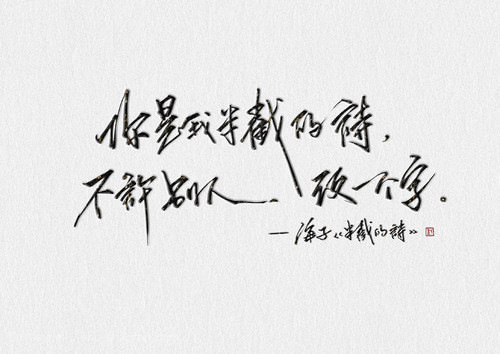 你是我半截的詩，
不許別人改一个字。
—海子《半截的詩》